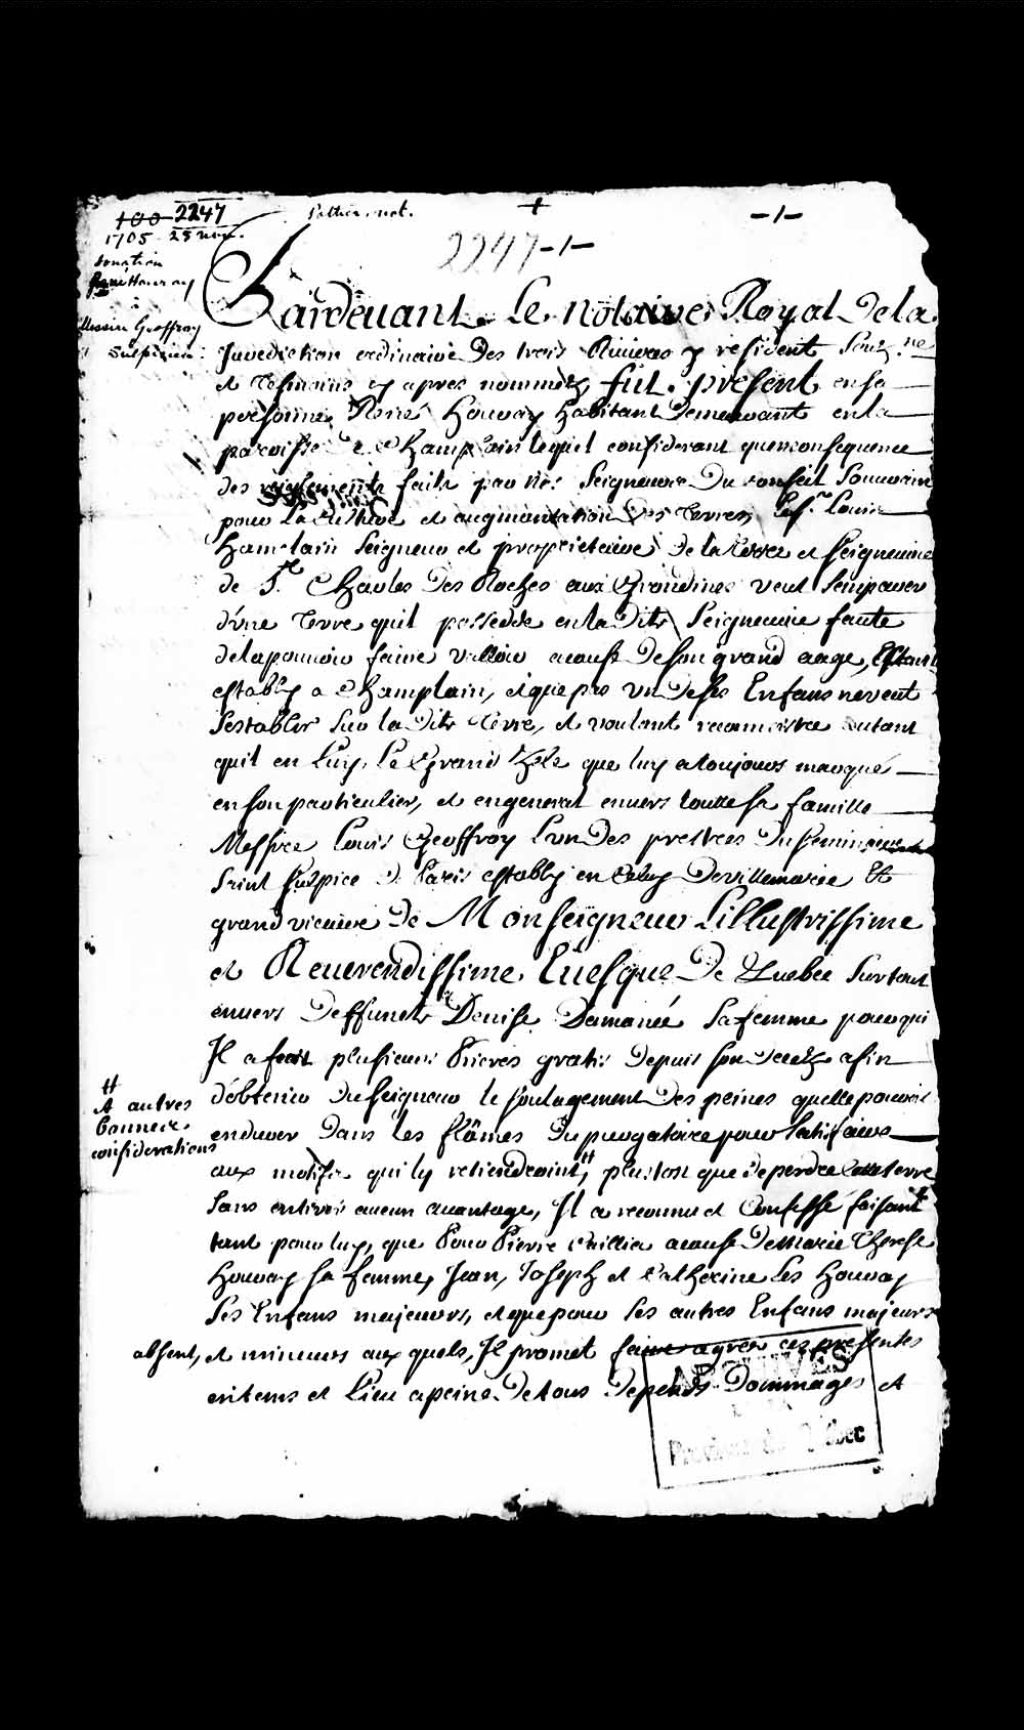 100 2247
1705 - 23 nov.
Pottier, not.
+
-1-
2247-1-
donation
René Houray
à
Messire Geoffroy
Sulpicien
Pardeuant Le notaire Royal De la
Jurediction ordinaire Des trois Riuieres y resident Soubz.ne
et Tesmoins cy apres nomméz fut present en sa
personne René Houray habitant Demeurant en la
paroisse de Champlain lequel considerant qu'en consequence
des reglements faits par nos Seigneurs Du conseil Souuerain
pour la culture et augmentation Des Terres, Le Sr. Louis
Hamelain Seigneur et proprietaire De la terre et seigneurie
de St. Charles Des Roches aux Grondines veut semparer
d'vne Terre quil possedde en la Ditte Seigneurie faute
de la pouuoir faire valloir a cause De son grand aage, Estant
estably a Champlain, et que pas vn De ses Enfans ne veut
Sestablir Sur la Ditte Terre, et voulant reconnoistre autant
quil en Luy, Le Grand Zele que luy a toujours marqué
en son particulier, et en general enuers toutte sa famille
Messire Louis Geoffroy L'un Des prestres Du Seminaire
Saint Sulpice De Paris estably en Celuy De villemarie Et
grand vicaire De Monseigneur Lillustrissime
et Reuerendissime Euesque De Quebec Surtout
enuers Deffuncte Denise Damanée Sa femme pour qui
Il a fait plusieurs Prieres gratis Depuis son Decedz afin
d'obtenir Du Seigneur le soulagement Des peines quelle pouuoit
endurer Dans les flâmes Du purgatoire pour satisfaire
aux motifs qui ly retiendroint, # plustost que De perdre Cette terre
# et autres
bonnes
considerations
Sans en tirer aucun auantage, Il a reconnu et Confessé faisant
tant pour luy, que Pour Pierre a cause De Marie Therese
Houray sa femme, Jean, Joseph et Catherine Les Houray
Ses Enfans majeurs, et que pour Ses autres Enfans majeurs
absent, et mineurs aux quels, Il promet faire agreer ces presentes
en tems et Lieu a peine De tous Depends Dommages et
ARCHIVES
Province de Québec